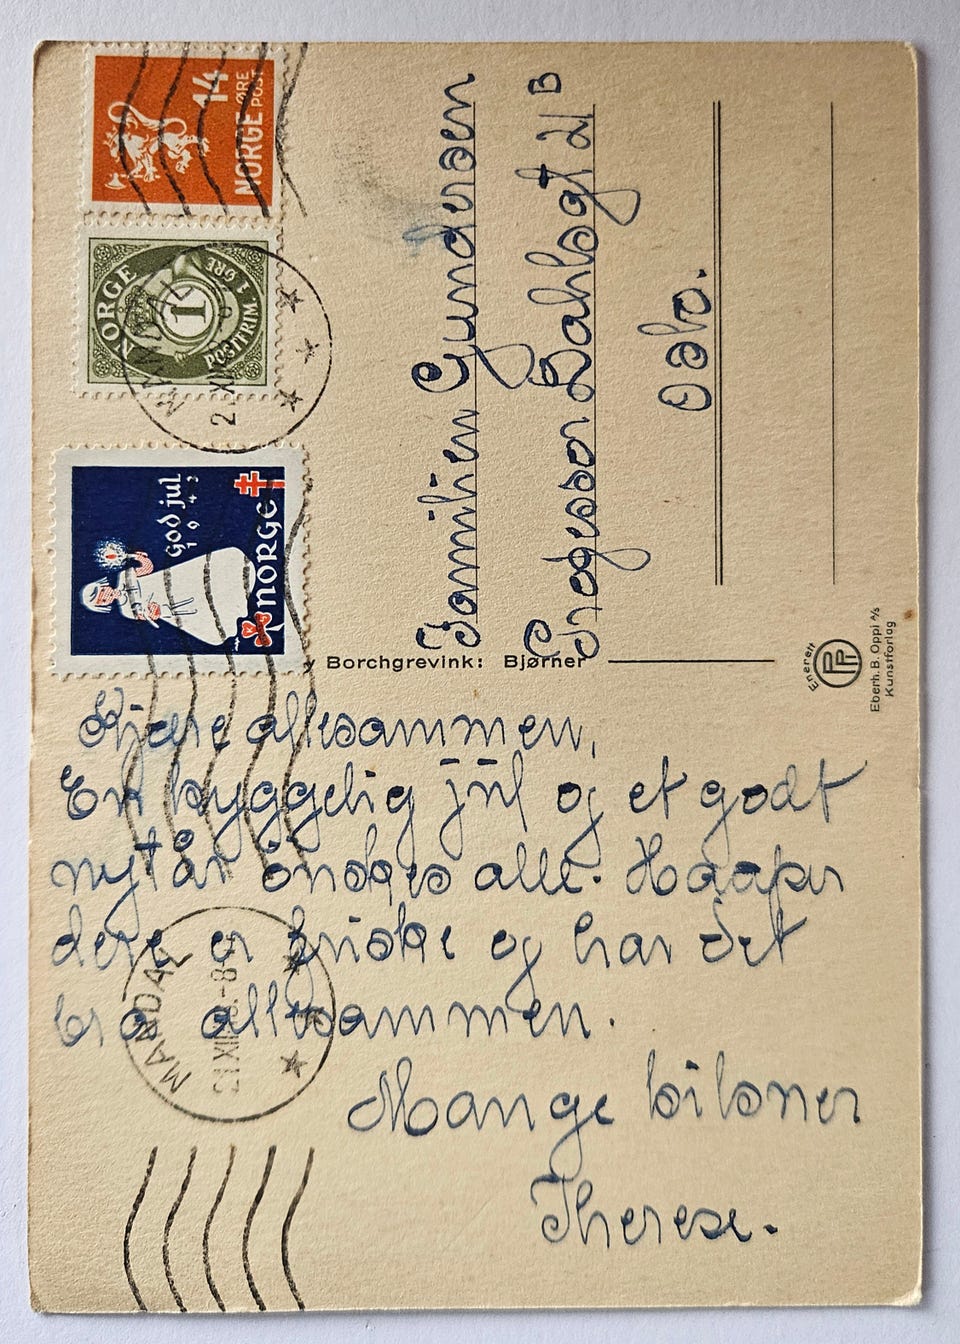 NORGE
14
ØRE
POST
NORGE
1
POSTFRIM. 1 ØRE
MANDAL
god jul
1943
NORGE
Familien Gundersen
Professor Dahlsgt 21 B
Oslo.
Borchgrevink: Bjørner
Enerett
Eberh. B. Oppi A/S
Kunstforlag
Kjære allesammen,
En hyggelig jul og et godt
nytår önskes alle. Haaper
dere er friske og har det
bra allesammen.
Mange hilsner
Therese.
MANDAL
21 XII